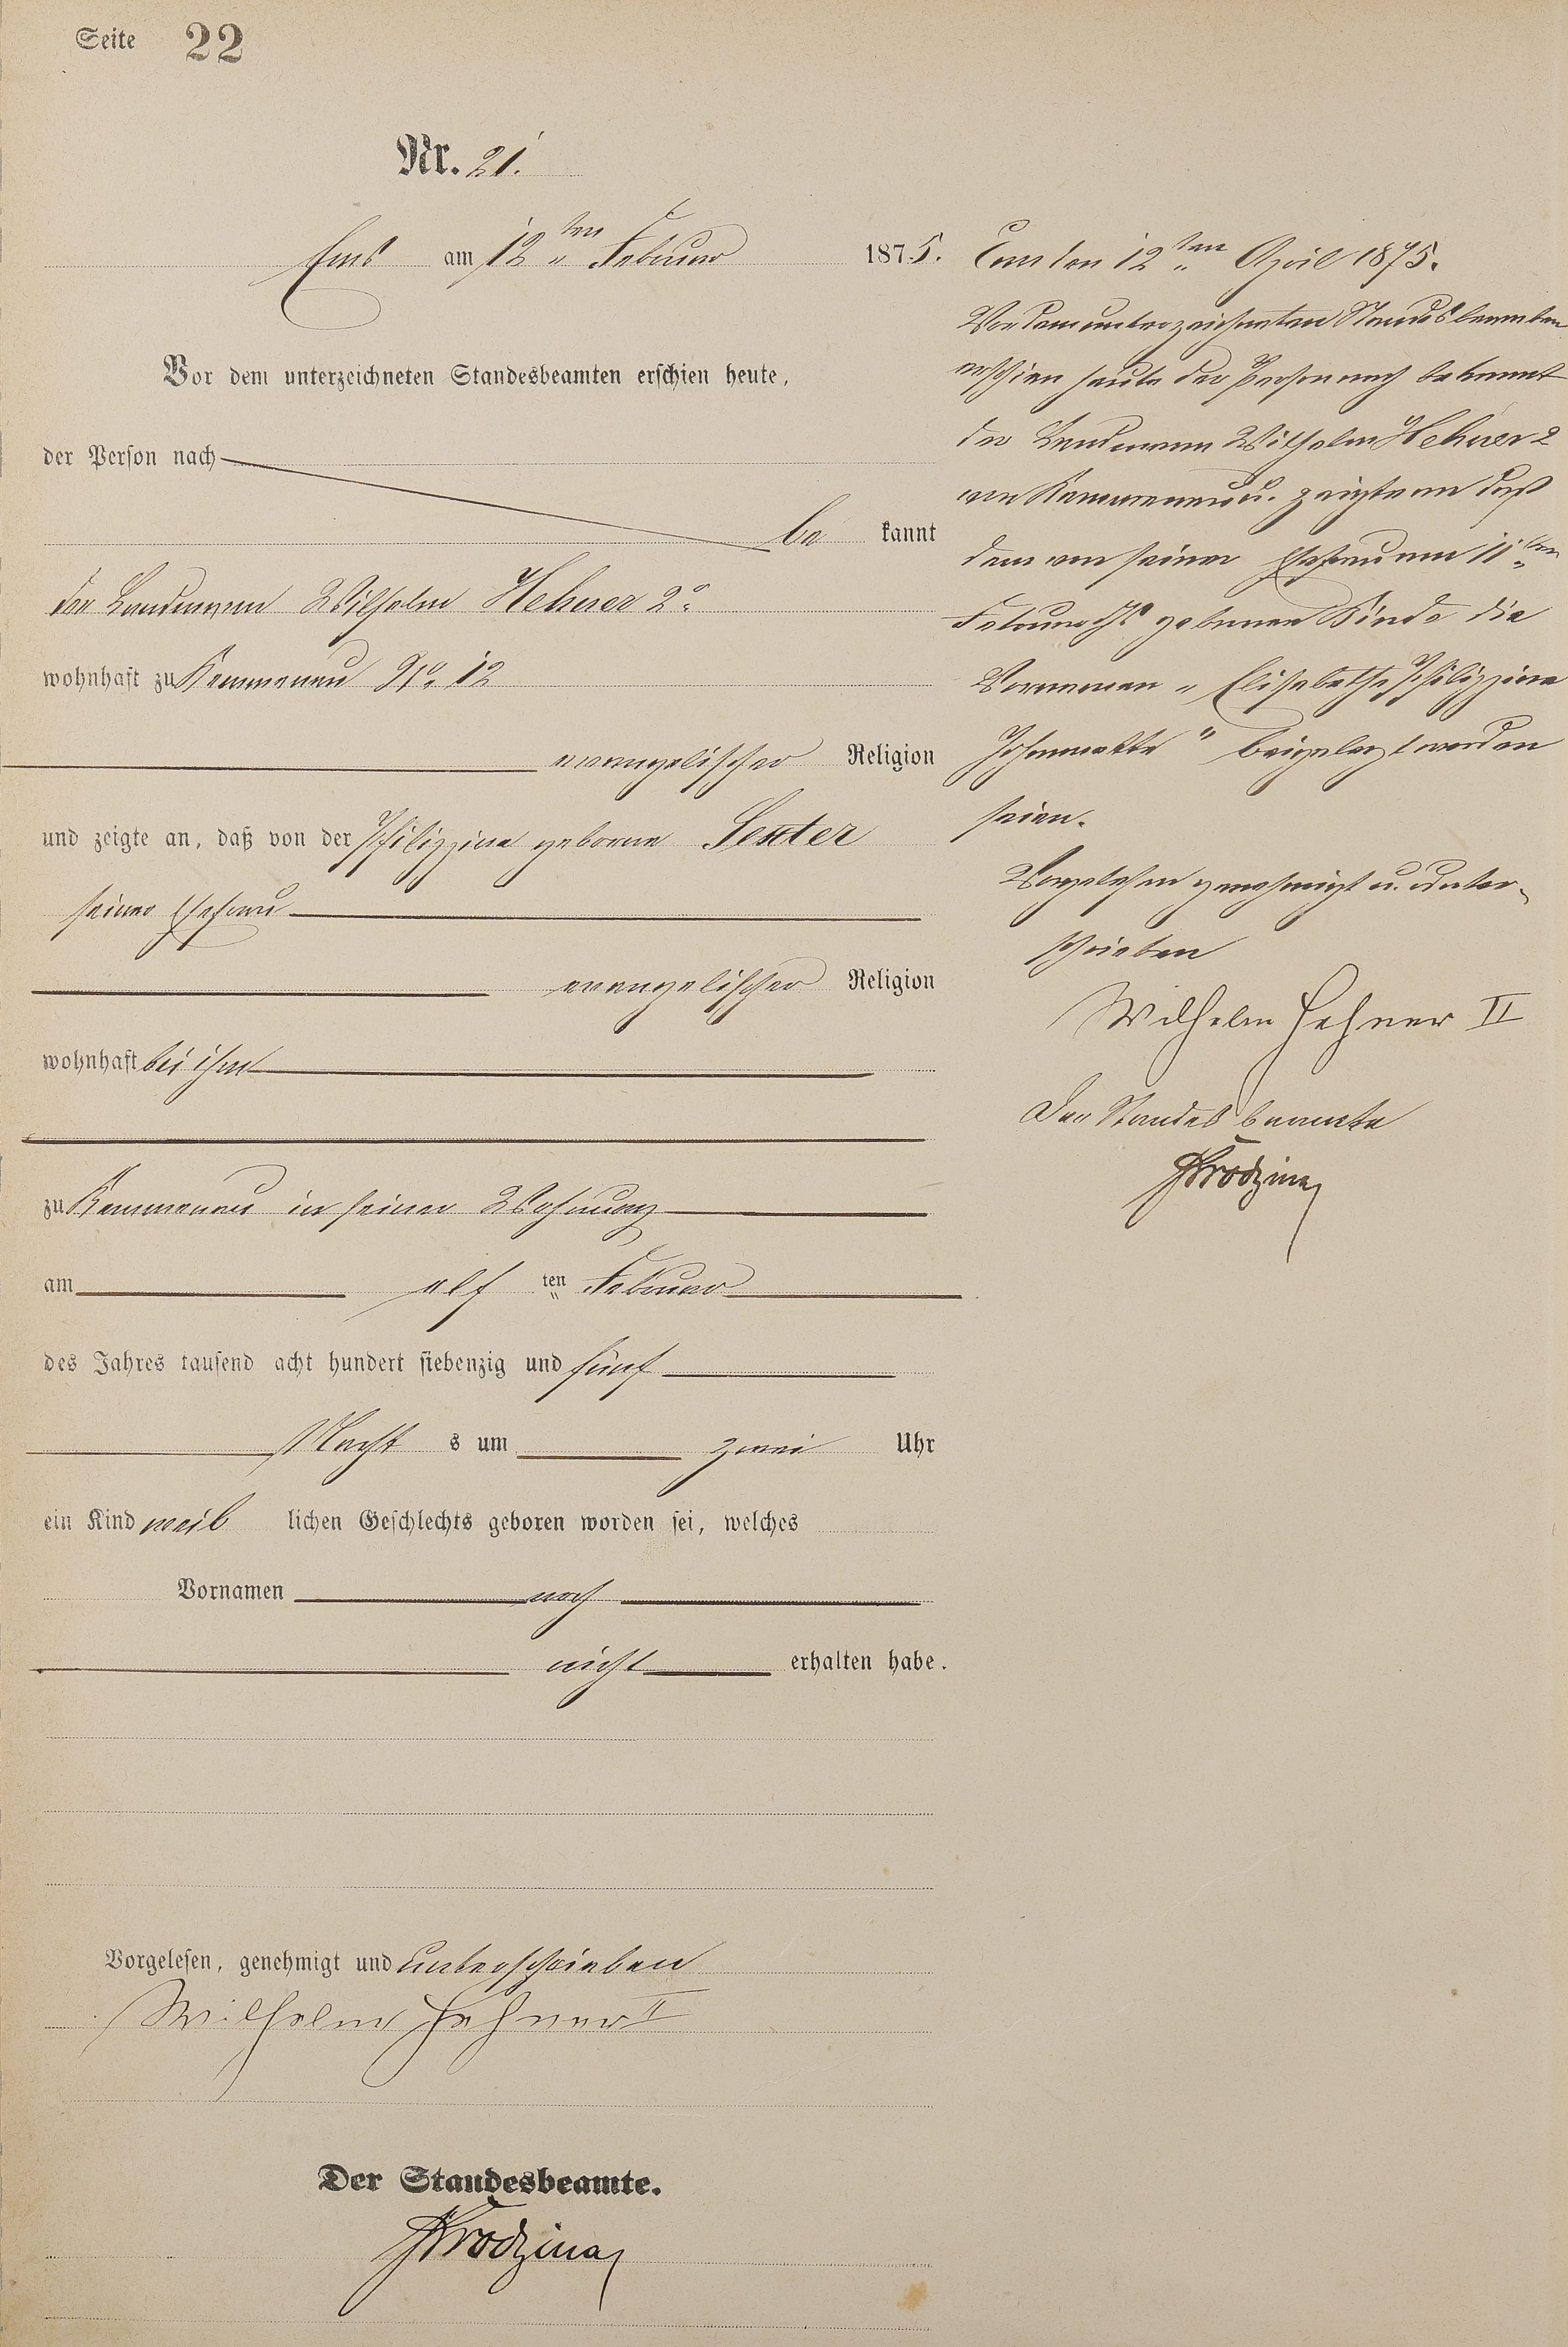 Seite 22
Nr. 21.
Ems am 12ten Februar 1875.
Vor dem unterzeichneten Standesbeamten erschien heute,
der Person nach
be kannt
der Landmann Wilhelm Hehner 2r
wohnhaft zu Kemmenau No 12
evangelischer Religion
und zeigte an, daß von der Philippine geborne Sexter
seiner Ehefrau
evangelischer Religion
wohnhaft bei ihm
zu Kemmenau in seiner Wohnung
am elf ten Februar
des Jahres tausend acht hundert siebenzig und fünf
Nacht s um zwei Uhr
ein Kind weib lichen Geschlechts geboren worden sei, welches
Vornamen noch
nicht erhalten habe.
Vorgelesen, genehmigt und unterschrieben
Wilhelm Hehner II
Der Standesbeamte.
Ems den 12ten April 1875.
Vor dem unterzeichneten Standesbeamten
erschien heute der Person nach bekannt
der Landmann Wilhelm Hehner 2
von Kemmenau u. zeigte an daß
dem von seiner Ehefrau am 11ten
Februar gebornen Kinde die
Vornamen „Elisabethe Philippine
Johannette" beigelegt worden
seien.
Vorgelesen genehmigt u. unter-
schrieben
Wilhelm Hehner II
Der Standesbeamte